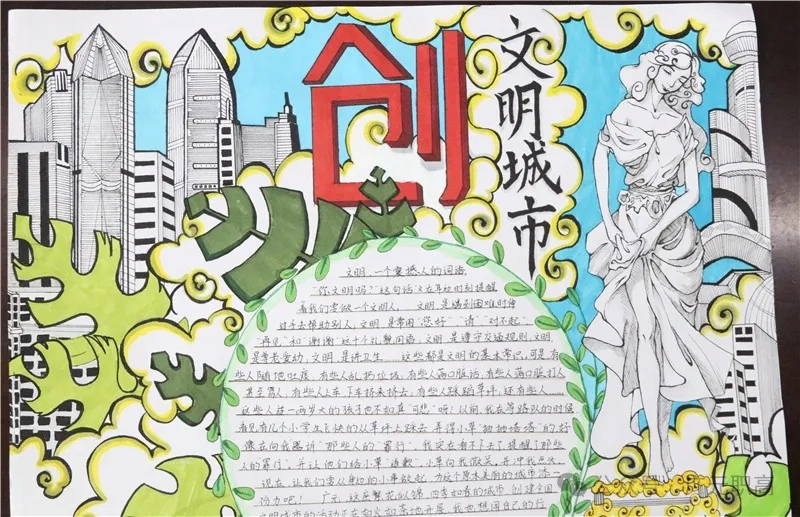 创
文明城市
文明,一个震撼人的词语
"你文明吗?"这句话又在耳边时刻提醒
着我们要做一个文明人。文明,是遇到困难时伸
出手去帮助别人,文明,是常用"您好""请""对不起"
"再见"和"谢谢"这十个礼貌用语,文明是遵守交通规则,文明
是尊老爱幼,文明,是讲卫生。这些都是文明的基本常识,可是,有
些人随地吐痰,有些人乱扔垃圾,有些人满口脏话,有些人满口脏话,打人
甚至骂人,有些人在下车挤来挤去,有些人踩踏草坪,还有些人……
这些人连一两岁大的孩子也不如真"可悲"听!以前,我在等路队的时候
看见有几个小学生飞快的从草坪上跑去,弄得小草"摇摇晃晃"的,好
像在向我诉说"那些人的"罪行",我实在看不下去了,提醒了那些
人的"罪行",并让他们给小草"道歉",小草向我微笑,并冲我点头
现在,让我们要从身边的小事做起,为这个原本美丽的城市添一
份力吧!
文明城市的活动正在如火如荼地开展,我也想用自己的行